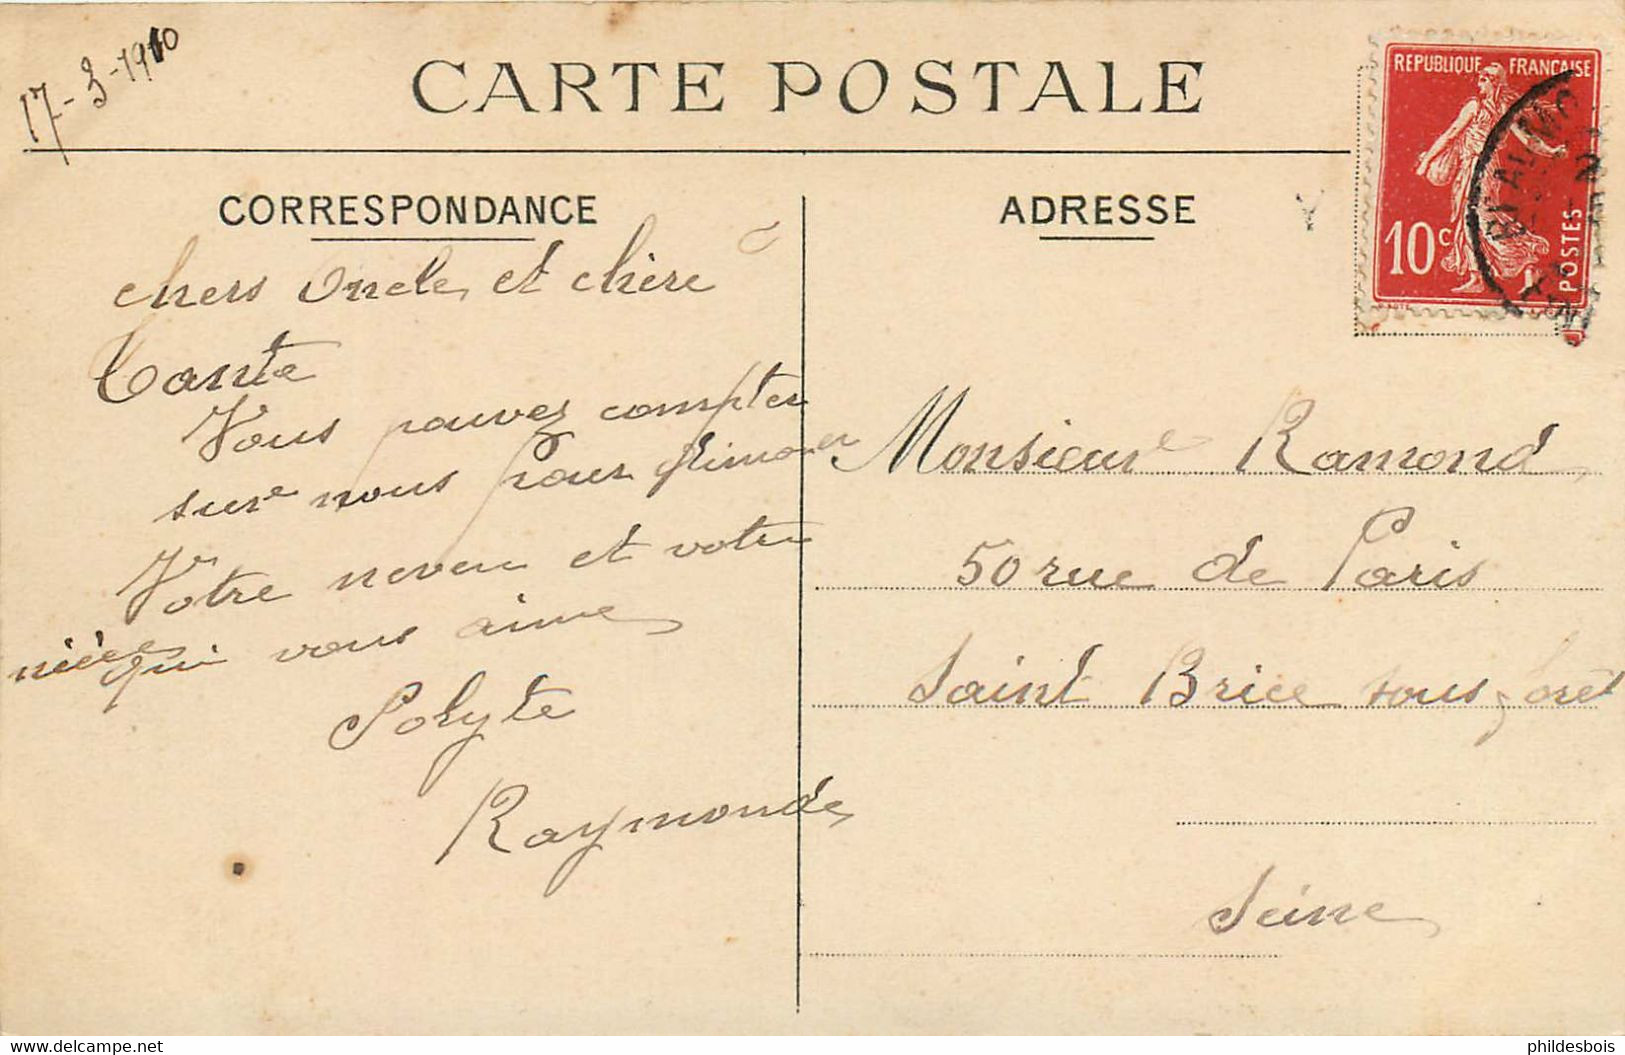 17-3-1910
CARTE POSTALE
CORRESPONDANCE
chers Oncle et chère
Tante
Vous pouvez compter
sur nous pour
Votre neveu et votre
nièce qui vous aime
Polyte
Raymonde
ADRESSE
REPUBLIQUE FRANÇAISE
10c
POSTES
Monsieur Ramond
50 rue de Paris
Saint Brice sous forêt
Seine
delcampe.net
phildesbois